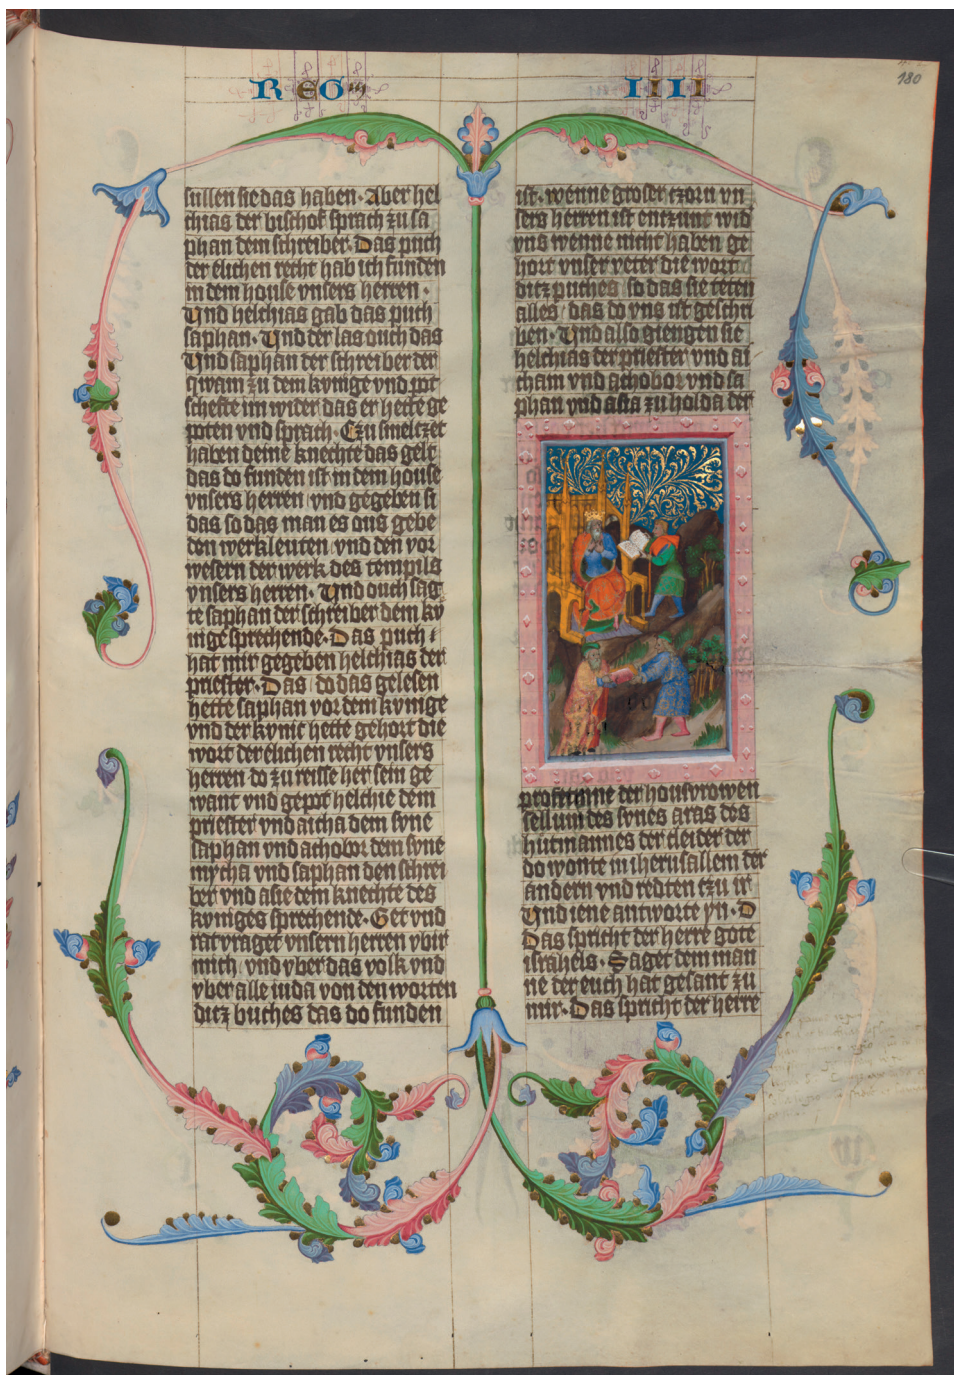 REG⁊ IIII
180
sullen sie das haben· Aber hel
chias der bischof sprach zu sa
phan dem schreiber· Das puch
der elichen recht hab ich funden
in dem house vnsers herren·
Vnd helchias gab das puch
saphan· Vnd der las ouch das
Vnd saphan der schreiber der
qwam zu dem kunige vnd pot
schefte im wider das er hette ge
poten vnd sprach· Czu smelczet
haben deine knechte das gelt
das do funden ist in dem house
vnsers herren vnd gegeben si
das so das man es ous gebe
den werkleuten vnd den vor
wesern der werk des tempils
vnsers herren· Vnd ouch sag
te saphan der schreiber dem kv
nige sprechende· Das puch
hat mir gegeben helchias der
priester· Das do das gelesen
hette saphan vor dem kvnige
vnd der kvnic hette gehort die
wort der elichen recht vnsers
herren do zu reisse her sein ge
want vnd gepot helchie dem
priester vnd aicha dem svne
saphan vnd achobor dem svne
mycha vnd saphan den schrei
ber vnd asie dem knechte des
kvniges sprechende· Get vnd
rat vraget vnsern herren vbir
mich vnd vber das volk vnd
vber alle iuda von den worten
ditz buches das do funden
ist· wenne groser czorn vn
sers herren ist entzunt wid
vns wenne nicht haben ge
hort vnser veter die wort
ditz puches so das sie teten
alles das do vns ist geschri
ben· Vnd also giengen sie
helchias der priester vnd ai
cham vnd achobor vnd sa
phan vnd asia zu holda der
profetinne der housvrowen
sellum des svnes aras des
hutmannes der cleider der
do wonte in iherusallem der
andern vnd redten tzu ir
Vnd iene antworte yn· D
Das spricht der herre gote
israhels· Saget dem man
ne der euch hat gesant zu
mir· Das spricht der herre